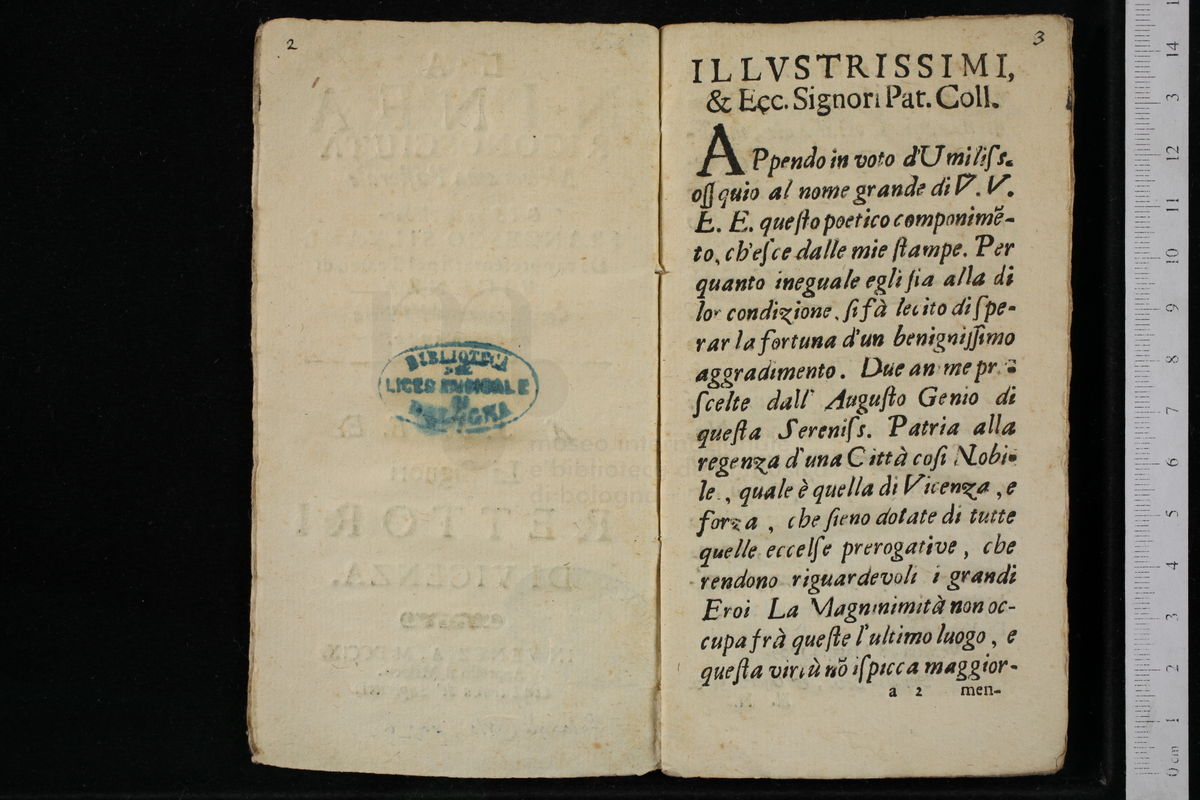 2
BIBLIOTECA
DEL
LICEO MUSICALE
DI
BOLOGNA
3
ILLVSTRISSIMI,
& Ecc. Signori Pat. Coll.
APpendo in voto d'Umiliſs.
oſſquio al nome grande di V. V.
E. E. queſto poetico componimẽ-
to, ch'eſce dalle mie ſtampe. Per
quanto ineguale egli ſia alla di
lor condizione, ſi fà lecito di ſpe-
rar la fortuna d'un benigniſſimo
aggradimento. Due anime pr
ſcelte dall' Auguſto Genio di
queſta Sereniſs. Patria alla
regenza d'una Città coſi Nobi-
le, quale è quella di Vicenza, e
forza, che ſieno dotate di tutte
quelle eccelſe prerogative, che
rendono riguardevoli i grandi
Eroi La Magninimità non oc-
cupa frà queſte l'ultimo luogo, e
queſta virtù nõ iſpicca maggior-
a 2 men-